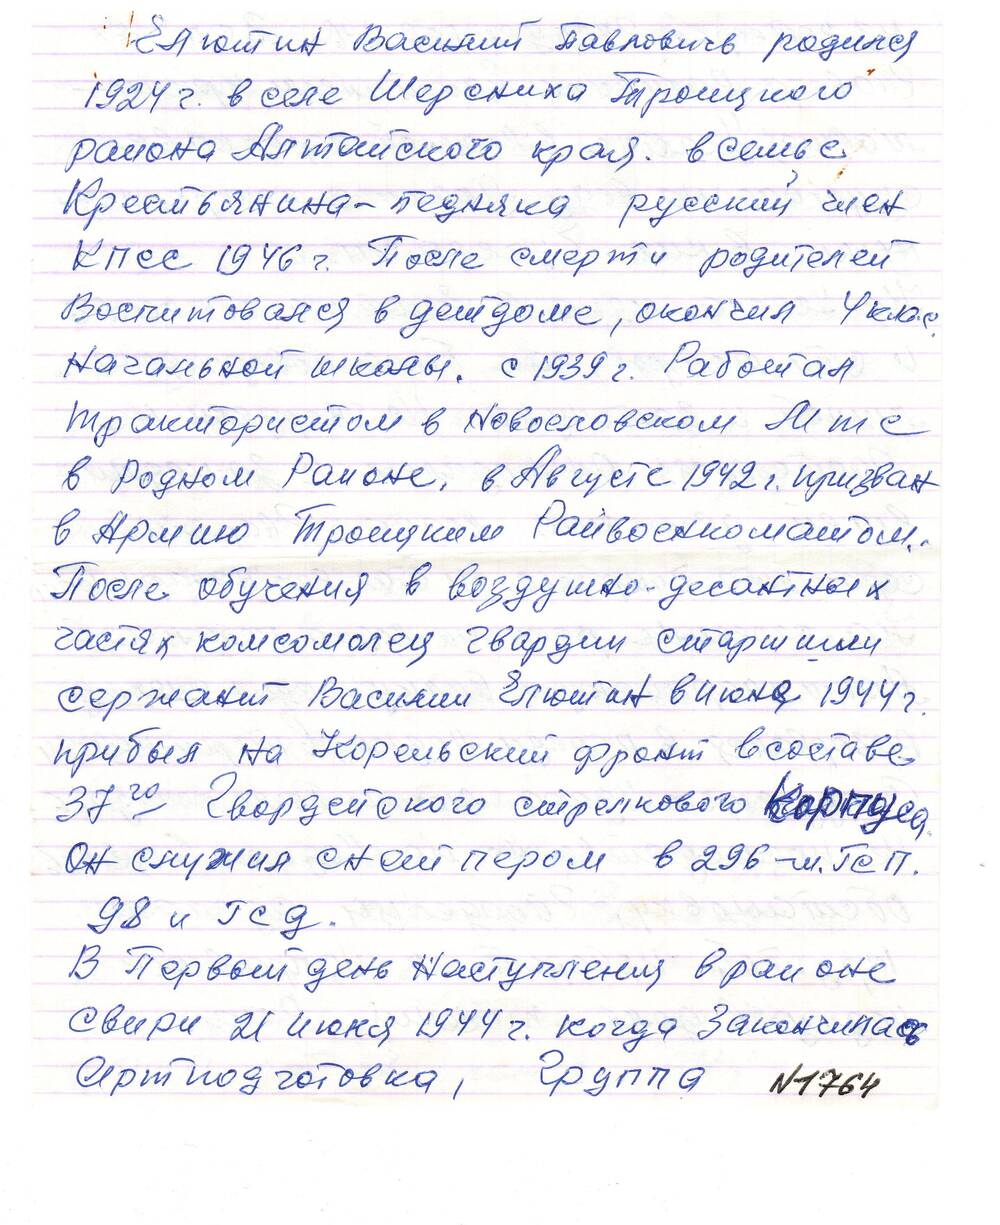 Елютин Василий Павлович родился
1924 г. в селе Шерсниха Троицкого
района Алтайского края. в семье
Крестьянина-педняка русский член
КПСС 1946 г. После смерти родителей
Воспитовался в детдоме, окончил 4 клас.
Начальной школы. с 1939 г. Работал
трактористом в Новоеловском Мтс
в Родном Районе. в Августе 1942 г. призван
в Армию Троицким Райвоенкоматом.
После обучения в воздушно-десантных
частях комсомолец гвардии старшии
сержант Василии Елютин в Июне 1944 г.
прибыл на Корельский фронт в составе
37го Гвардейского стрелкового Корпуса.
Он служил снайпером в 296-м. Гсп.
98 и гсд.
В Первый день Наступления в районе
свири 21 июня 1944 г. когда Закончилась
Артподготовка, Группа
N1764